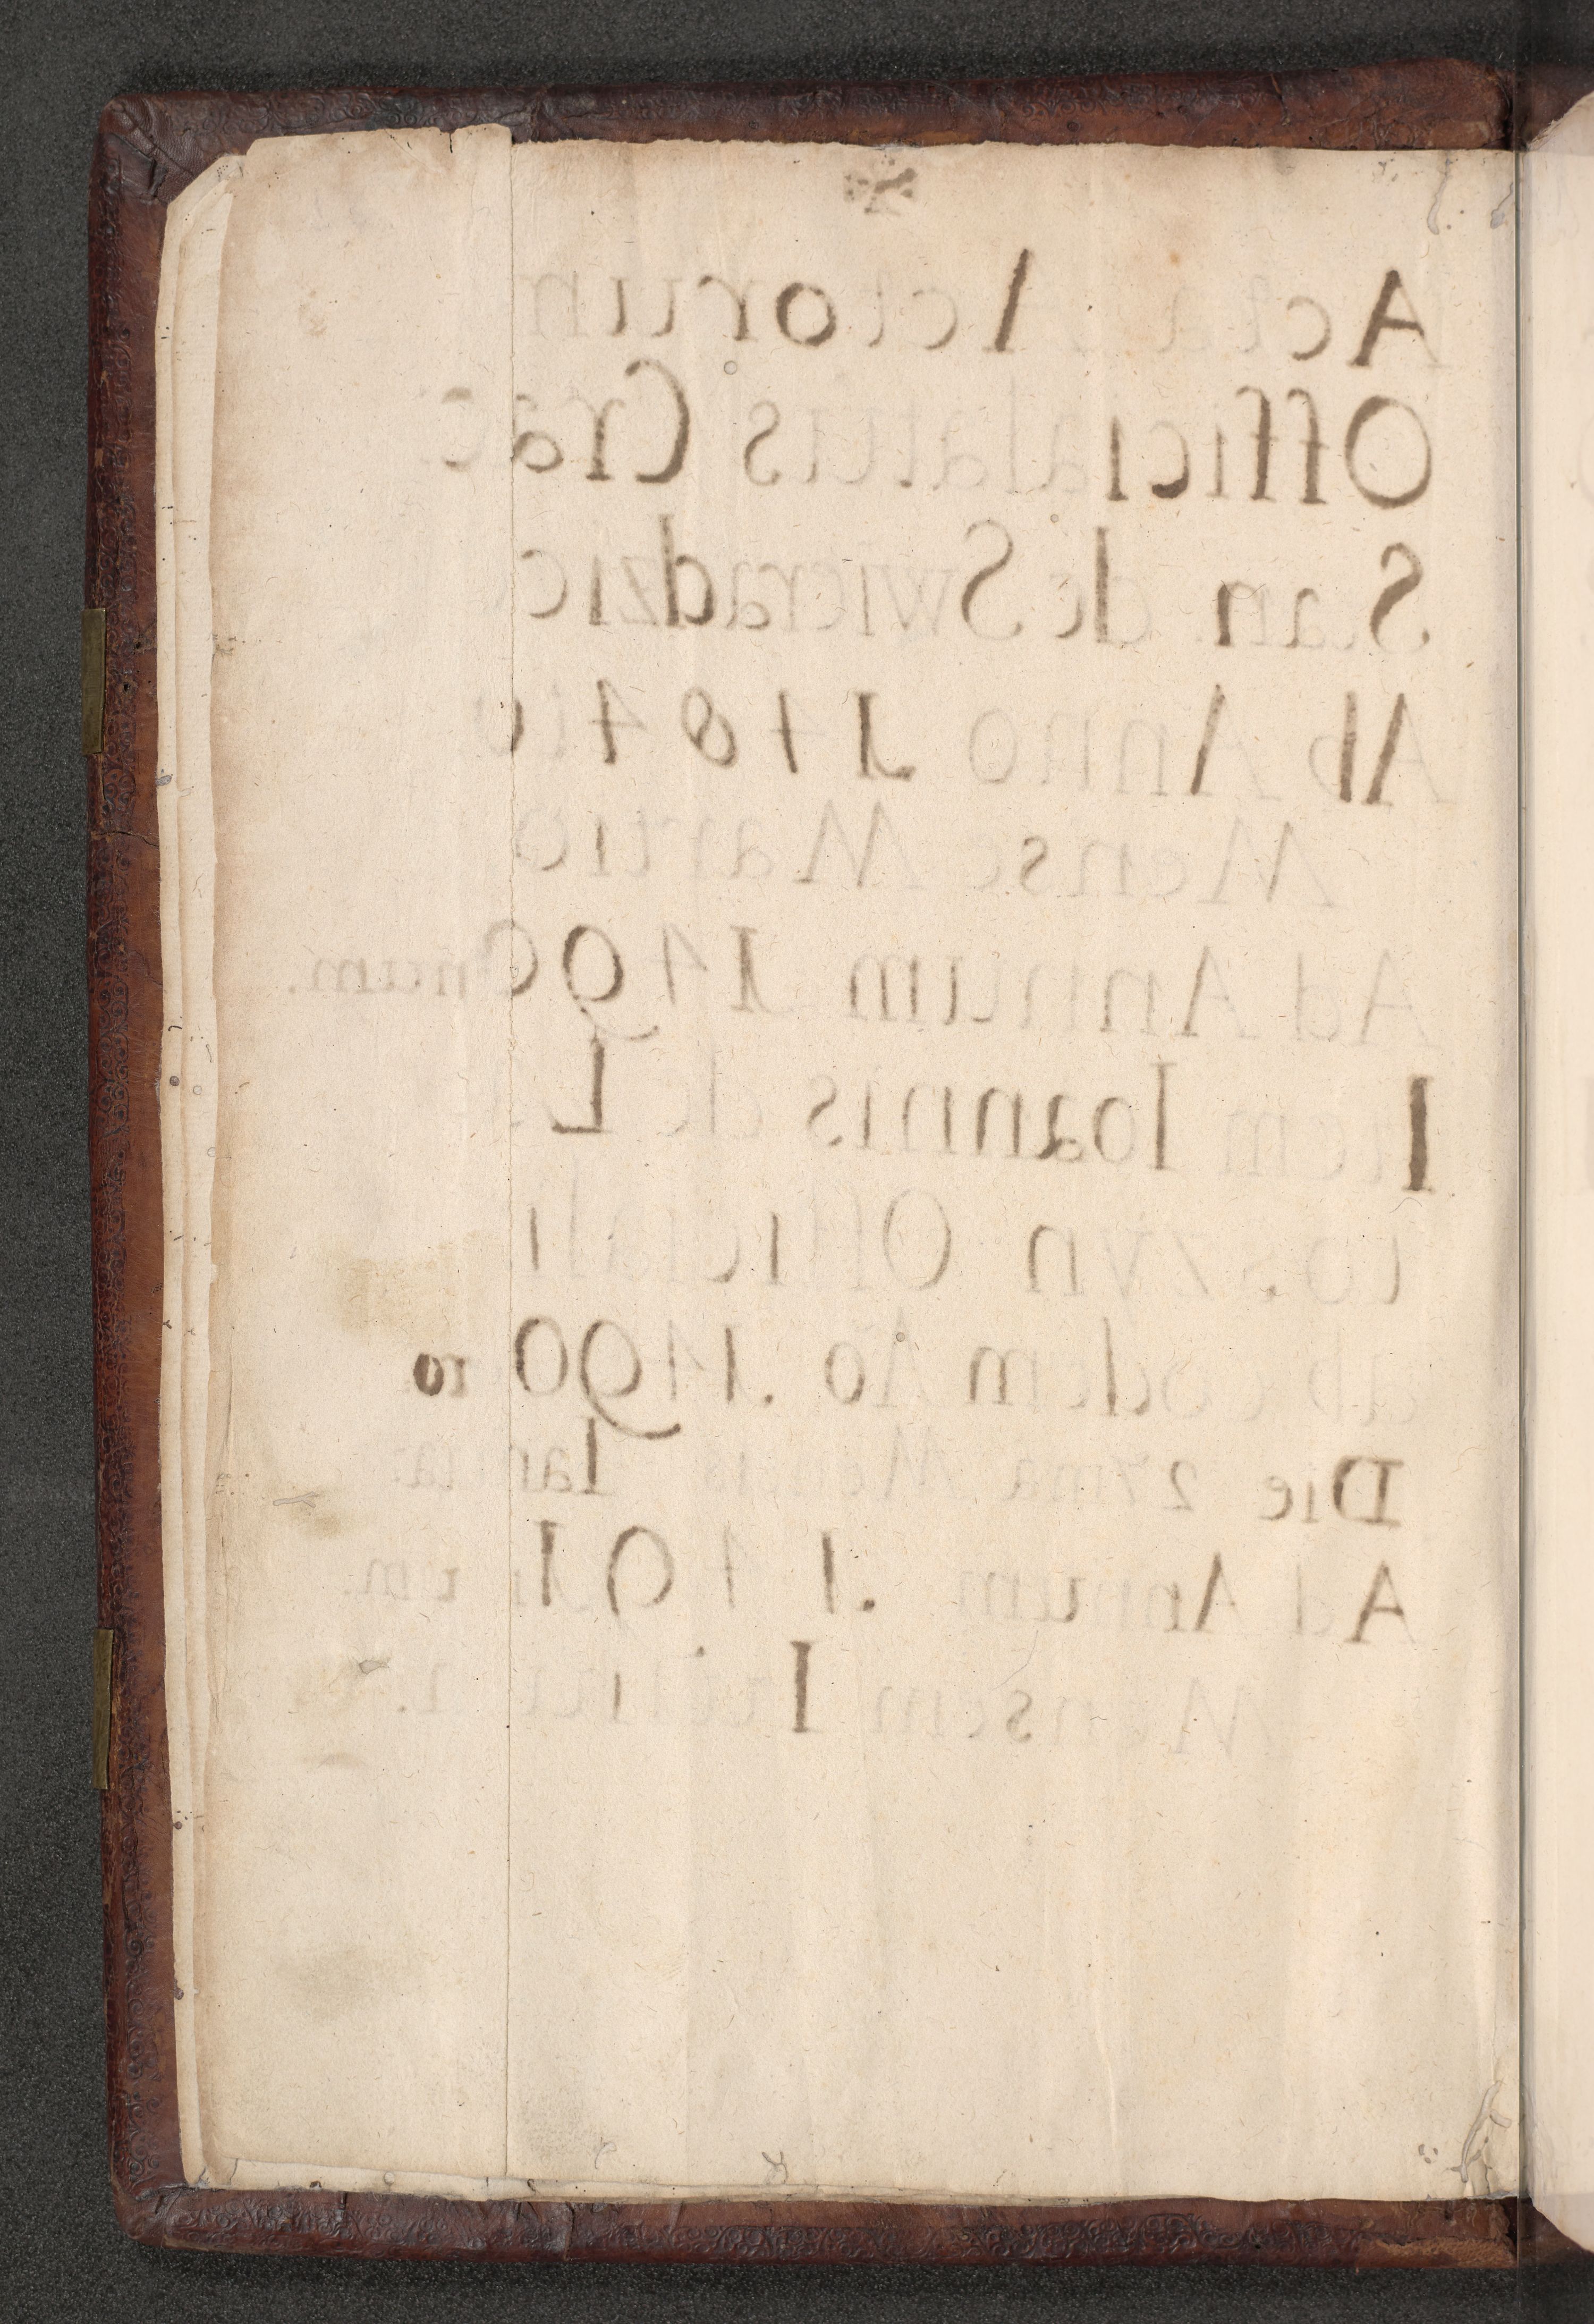 Acta Actorum
Officialatus Crac:
Stan. de Swieradzic
Ab Anno 1484to
Mense Martio
Ad Annum 1490num.
Item Ioannis de La
toszyn Officiali
ab eodem Ao. 1490 ro
Die 27ma Mensis Ian
Ad Annum .1491 um.
Mensem